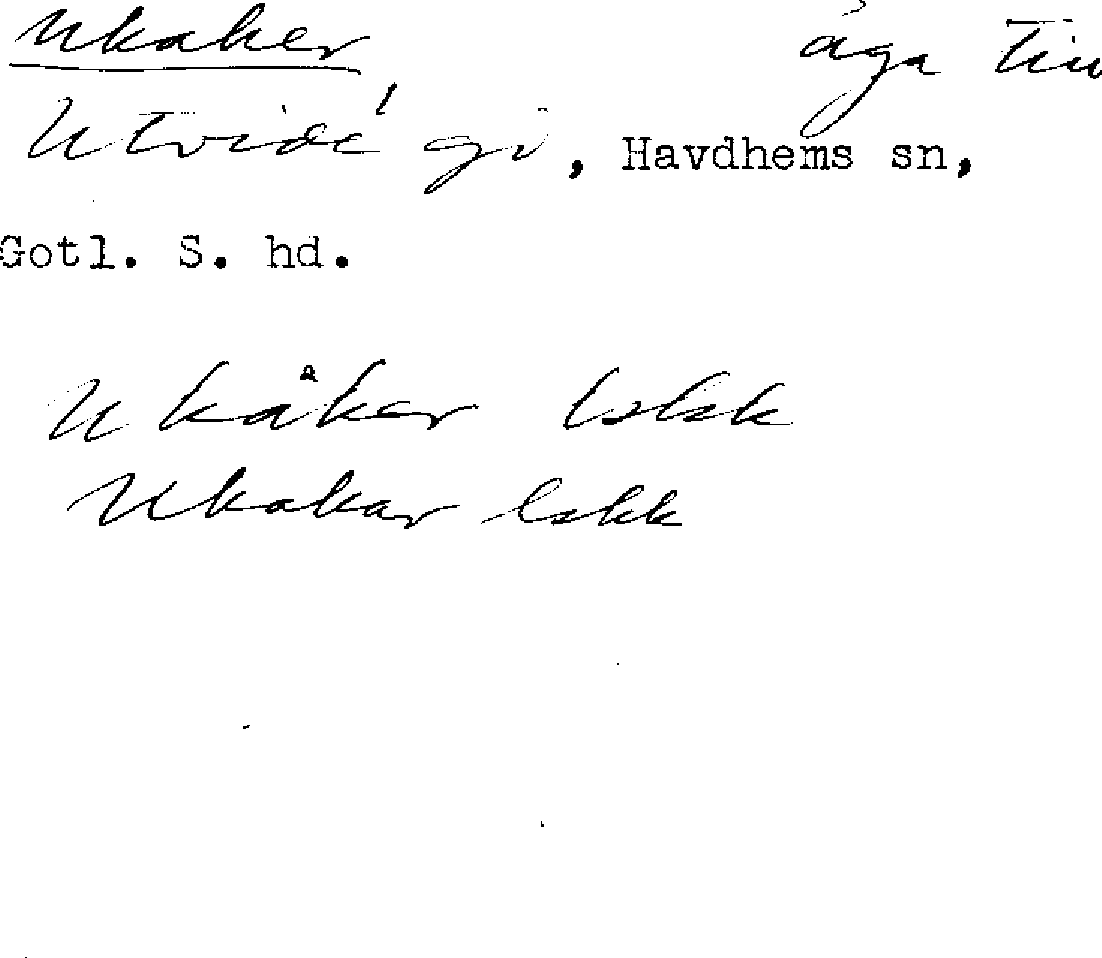 Ukaker åga
Utvide gd, Havdhems sn,
Gotl. S. hd.
Ukåker lskk
Ukakar lskk